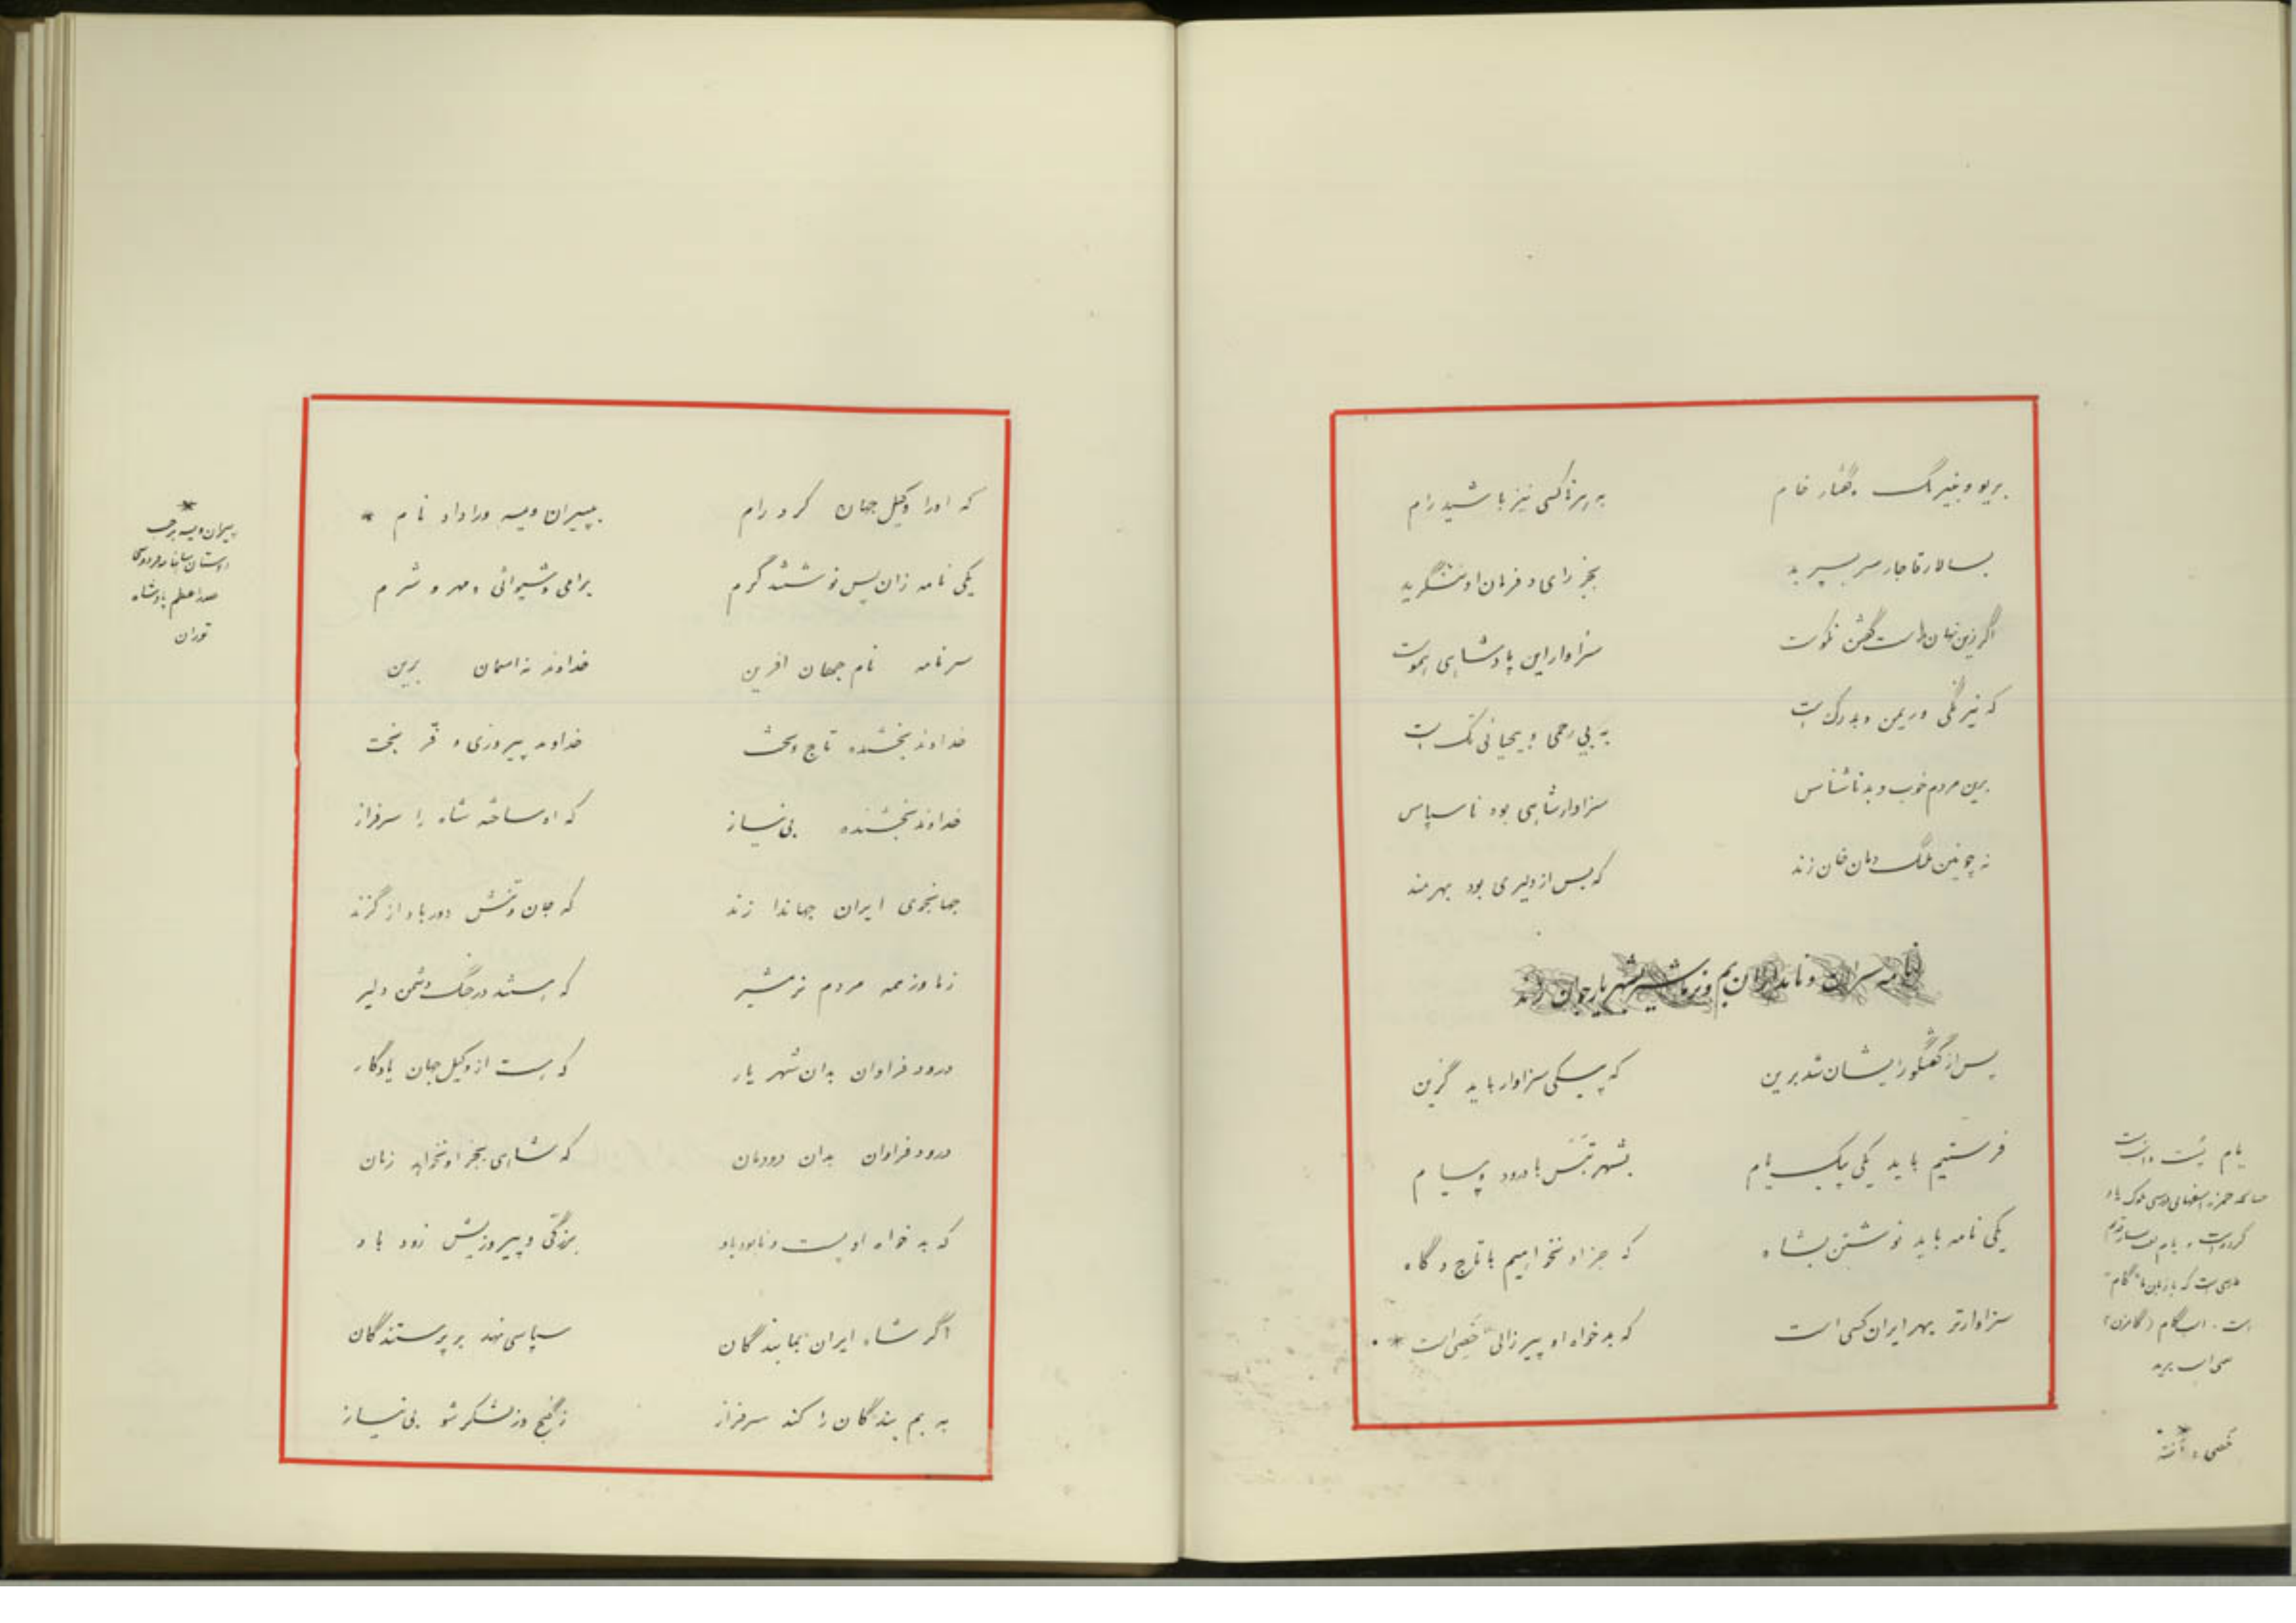 بریو و نیرنگ و گفتار خام
به هر ناکسی نیز باشید رام
بسالار قاجار سر بسپرید
بجز رای و فرمان او ننگرید
سزاوار این پادشاهی هموست
که نیرنگی و ریمن و بدرگ است
به بی رحمی و بیحیائی تک است
برین مردم خوب و بد ناشناس
سزاوار شاهی بود ناسپاس
خان زند
که بس از دلیری بود بهرمند
نامه سران و نامداران بم و نرماشیر بشهریار جوان زند
پس از گفتگو رایشان شد برین
که پیکی سزاوار باید گزین
فرستیم باید یکی پیک یام
بشهر تبس با درود و پیام
یکی نامه باید نوشتن بشاه
که جز او نخواهیم با تاج و گاه
سزاوارتر بهر ایران کسی است
که بدخواه او پیر زالی خصی است *
یام
خصی = اخته
که او را وکیل جهان کرد رام
بپیران ویسه ورا داد نام *
یکی نامه زان پس نوشتند گرم
برامی و شیوائی و مهر و شرم
سر نامه نام جهان آفرین
خداوند نه آسمان برین
خداوند بخشنده تاج و تخت
خداوند پیروزی و فر و بخت
خداوند بخشنده بی نیاز
که او ساخته شاه را سرفراز
جهانجوی ایران جهاندار زند
که جان و تنش دور باد از گزند
ز ما وز همه مردم نرمشیر
که هستند در جنگ دشمن دلیر
درود فراوان بدان شهریار
که هست از وکیل جهان یادگار
درود فراوان بدان دودمان
که شاهی بجز او نخواهد زمان
که بدخواه او پست و نابود باد
بزرگی و پیروزیش زود باد
اگر شاه ایران بما بندگان
سپاسی نهد بر پرستندگان
به بم بندگان را کند سرفراز
ز گنج وز لشکر شو بی نیاز
*
پیران ویسه برحسب
داستان شاهنامه فردوسی
صدراعظم پادشاه
توران